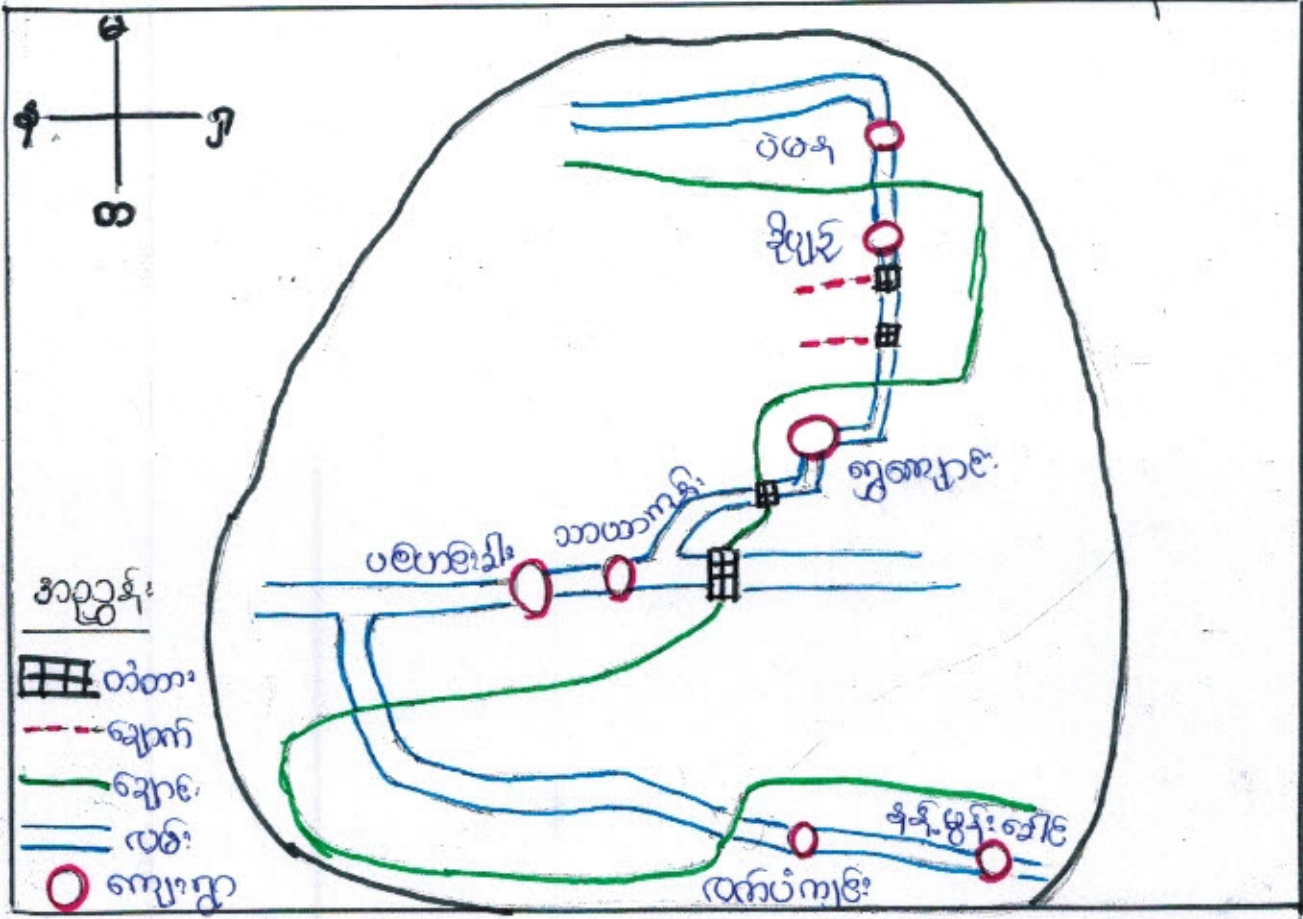 မ
န
ရှ
တ
ပဲမရ
ခိုပျဉ်
ရွှေကျောင်း
သာယာကုန်း
ပစ်ဟင်းခါး
အညွှန်း
တံတား
ချောက်
ချောင်း
လမ်း
ကျေးရွာ
လက်ပံကျင်း
နံ့နံ့မွန်းခေါင်